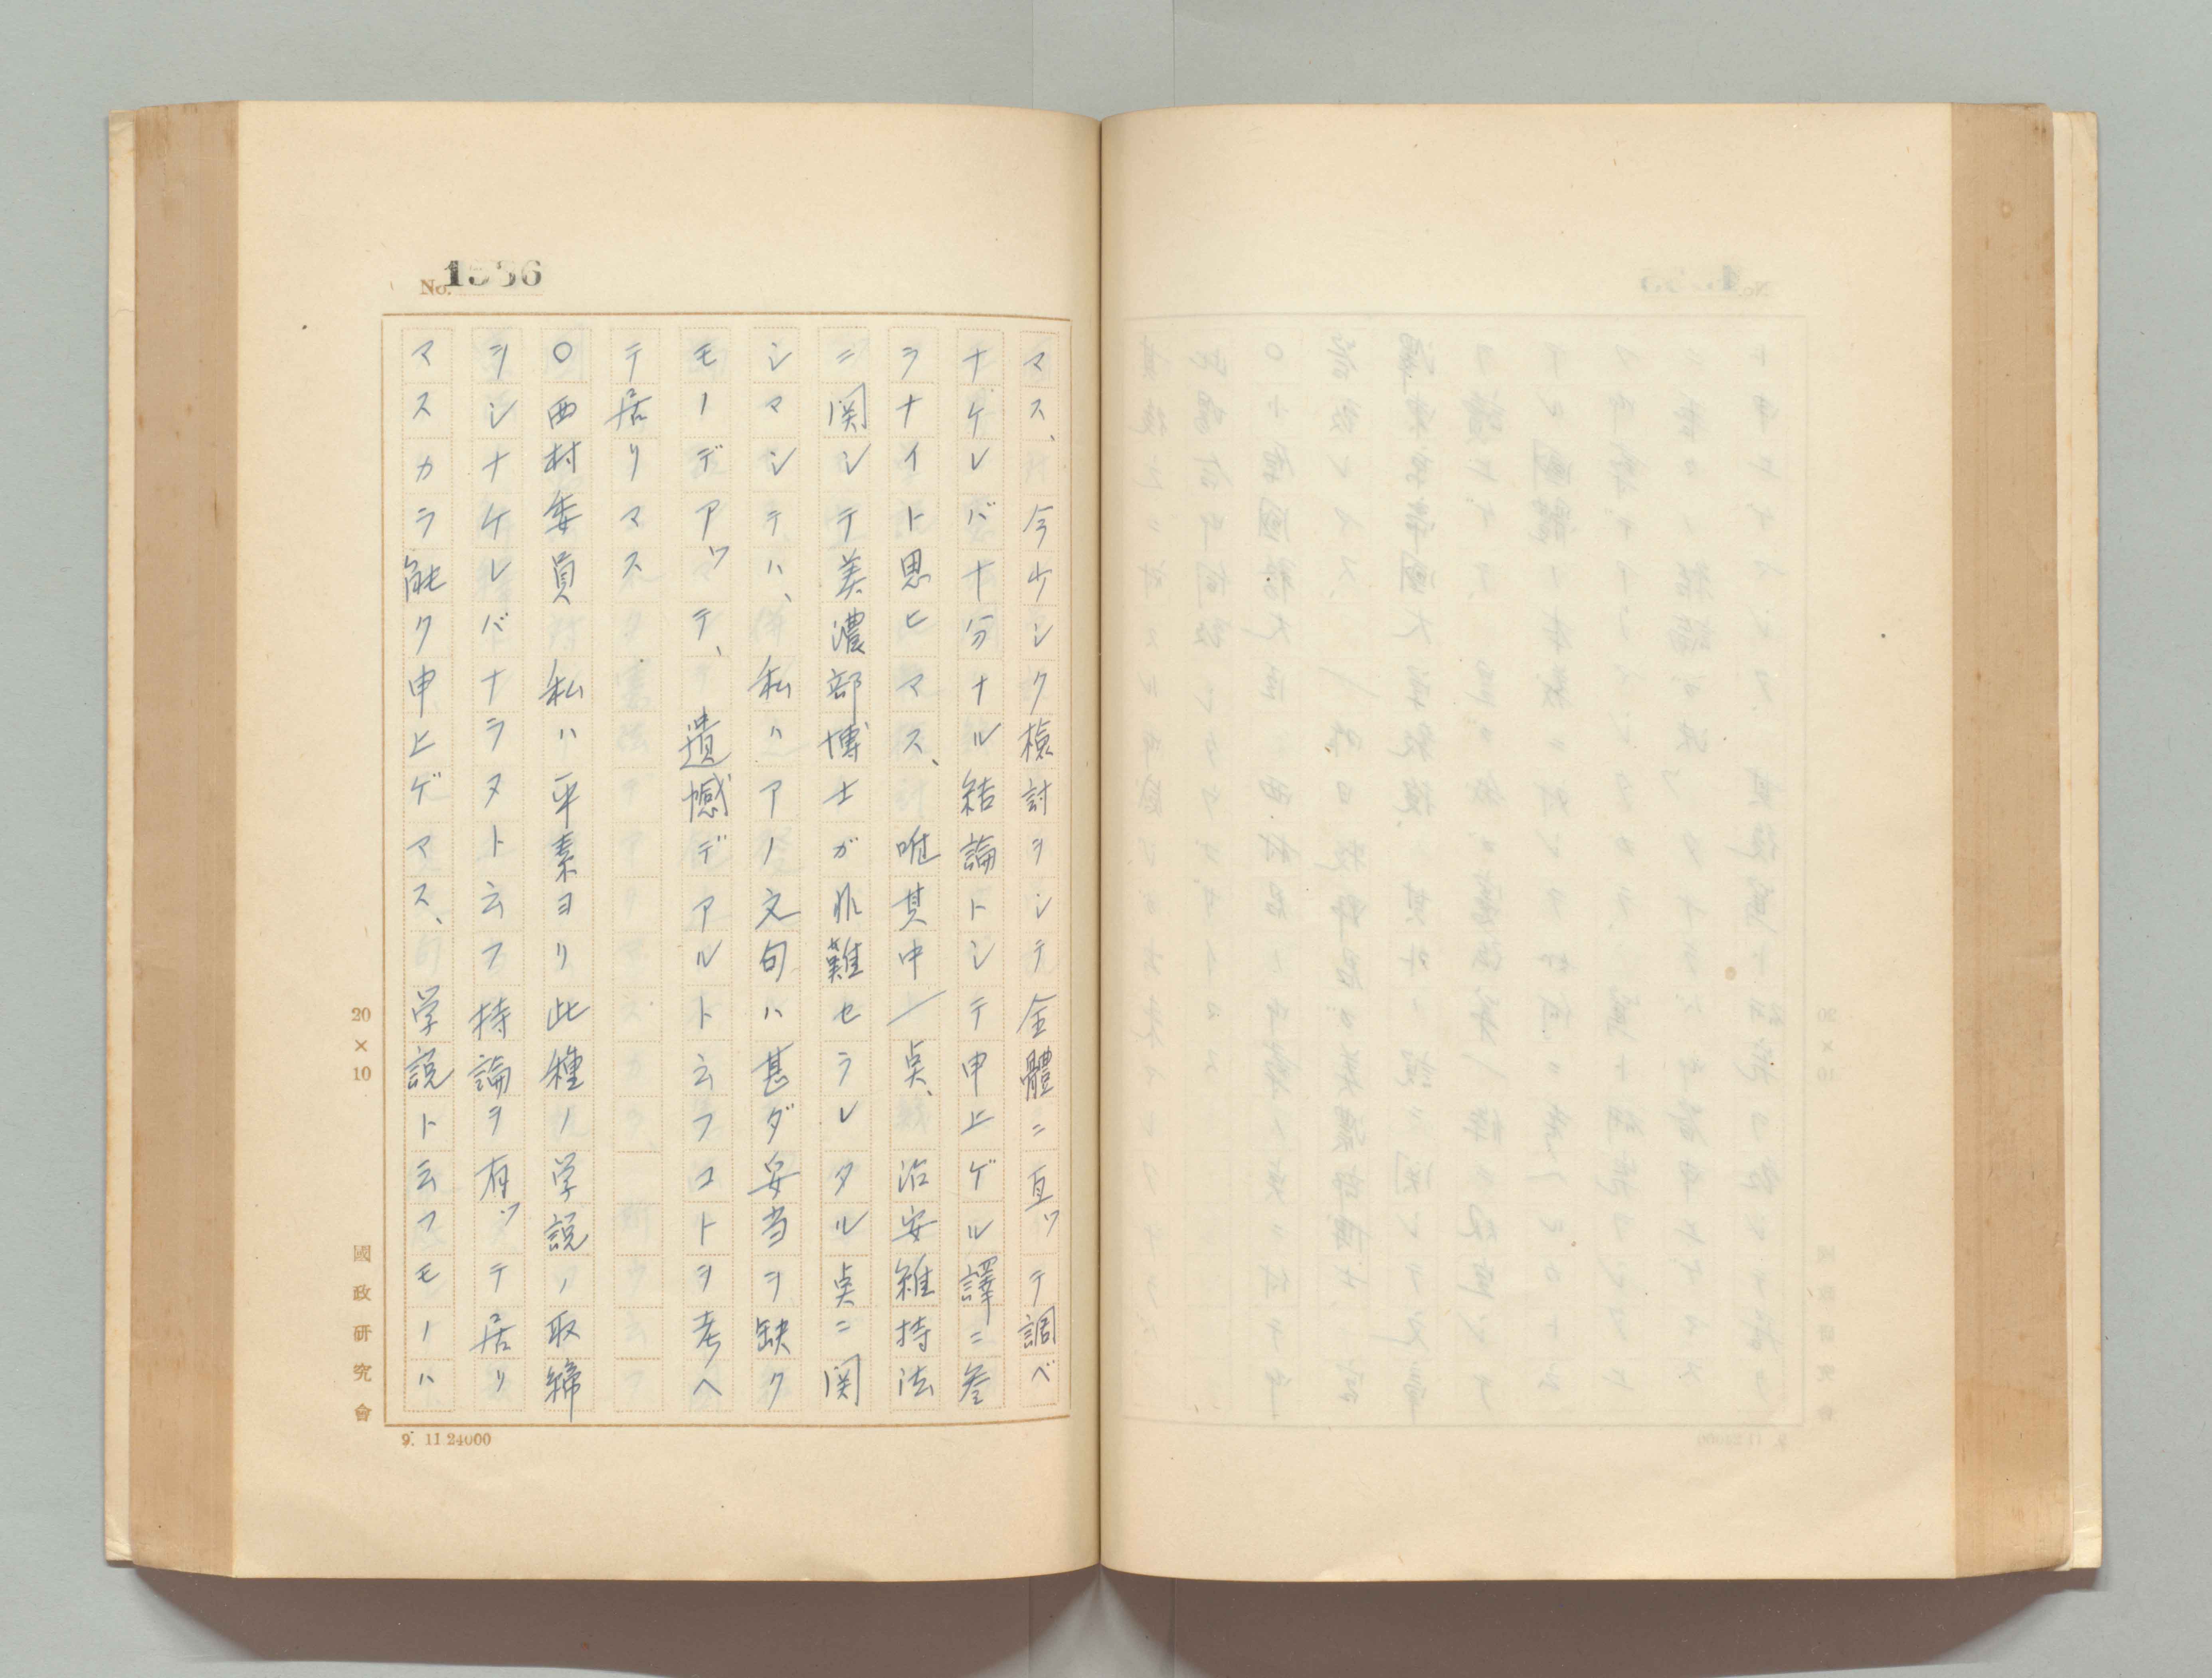 No. 1536
マス、今少シク検討ヲシテ全體ニ亙ツテ調ベ
ナケレバ十分ナル結論トシテ申上ゲル譯ニ参
ラナイト思ヒマス、唯其中ノ一点、治安維持法
ニ関シテ美濃部博士ガ非難セラレタル点ニ関
シマシテハ、私ハアノ文句ハ甚ダ妥当ヲ缺ク
モノデアツテ、遺憾デアルト云フコトヲ考ヘ
テ居リマス
〇西村委員 私ハ平素ヨリ此種ノ学説ノ取締
ヲシナケレバナラヌト云フ持論ヲ有ツテ居リ
マスカラ能ク申上ゲマス、学説ト云フモノハ
20×10
國政研究會
9. 11 24000